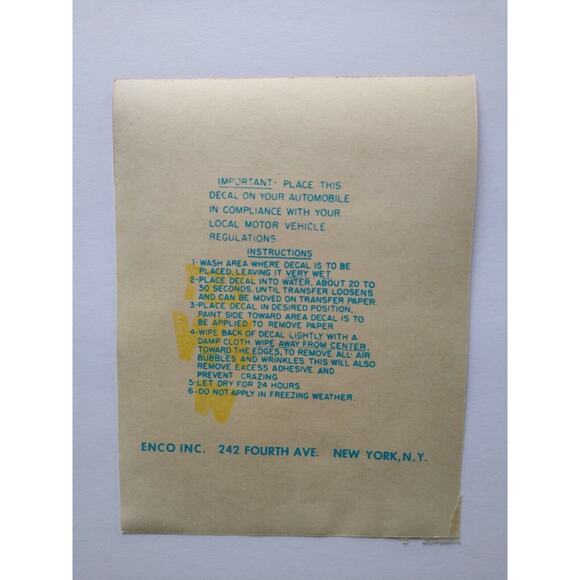 IMPORTANT- PLACE THIS
DECAL ON YOUR AUTOMOBILE
IN COMPLIANCE WITH YOUR
LOCAL MOTOR VEHICLE
REGULATIONS
INSTRUCTIONS
1-WASH AREA WHERE DECAL IS TO BE
PLACED, LEAVING IT VERY WET
2-PLACE DECAL INTO WATER, ABOUT 20 TO
30 SECONDS, UNTIL TRANSFER LOOSENS
AND CAN BE MOVED ON TRANSFER PAPER
3-PLACE DECAL IN DESIRED POSITION,
PAINT SIDE TOWARD AREA DECAL IS TO
BE APPLIED TO REMOVE PAPER
4-WIPE BACK OF DECAL LIGHTLY WITH A
DAMP CLOTH WIPE AWAY FROM CENTER,
TOWARD THE EDGES, TO REMOVE ALL AIR
BUBBLES AND WRINKLES. THIS WILL ALSO
REMOVE EXCESS ADHESIVE AND
PREVENT CRAZING
5-LET DRY FOR 24 HOURS
6-DO NOT APPLY IN FREEZING WEATHER.
ENCO INC. 242 FOURTH AVE. NEW YORK, N.Y.